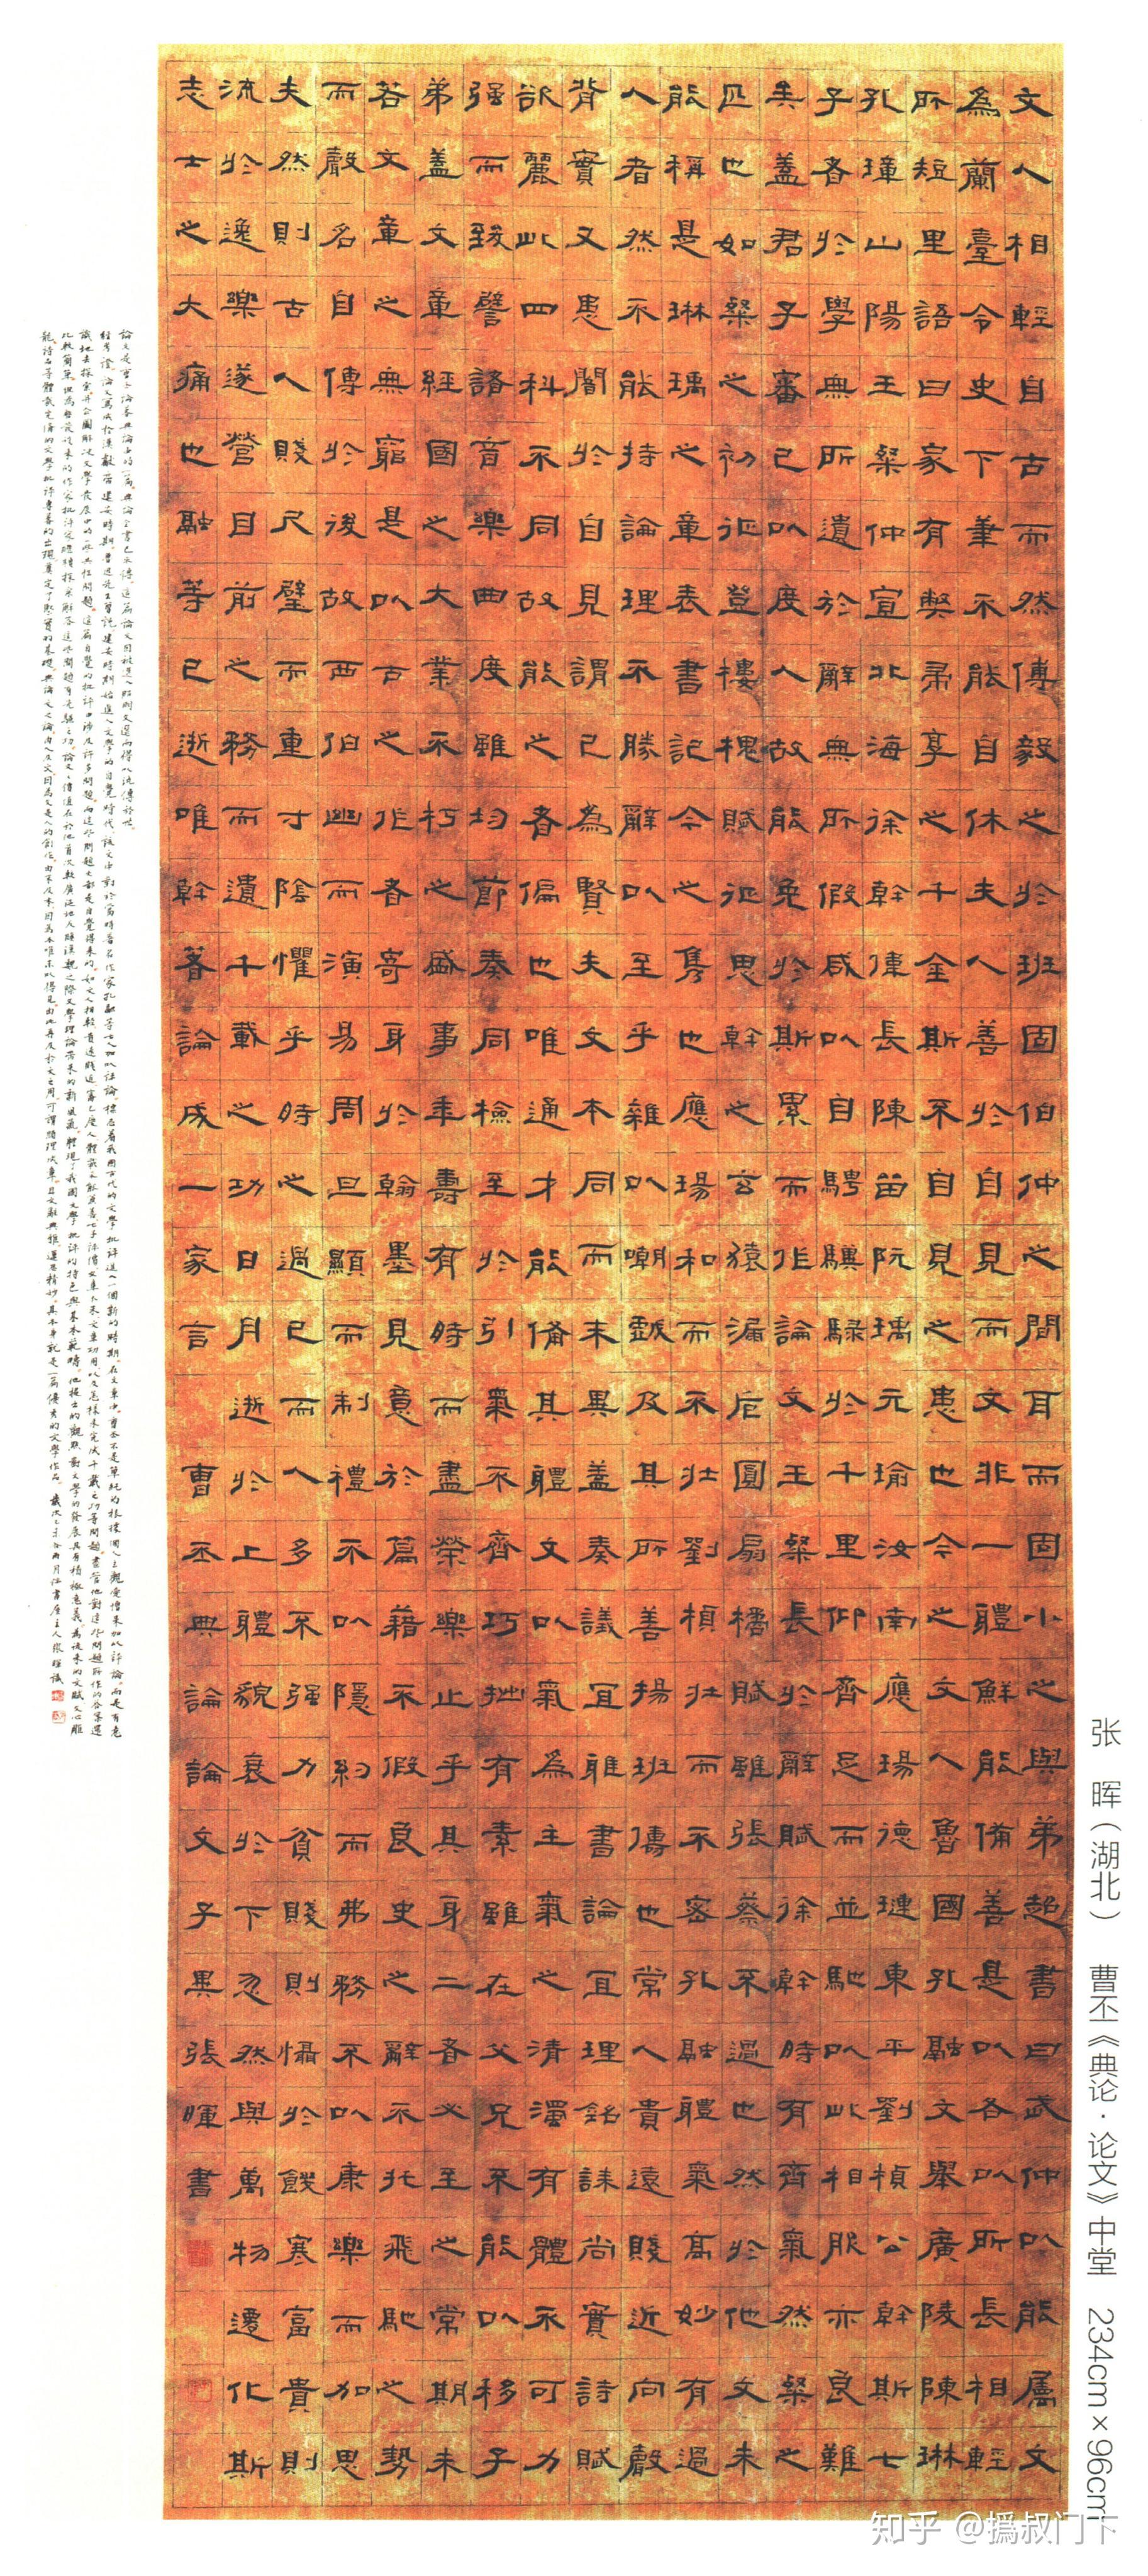 文人相輕自古而然傅毅之於班固伯仲之間耳而固小之與弟超書曰武仲以能屬文
為蘭臺令史下筆不能自休夫人善於自見而文非一體鮮能備善是以各以所長相輕
所短里語曰家有弊帚享之千金斯不自見之患也今之文人魯國孔融文舉廣陵陳琳
孔璋山陽王粲仲宣北海徐幹偉長陳留阮瑀元瑜汝南應瑒德璉東平劉楨公幹斯七
子者於學無所遺於辭無所假咸以自騁驥騄於千里仰齊足而並馳以此相服亦良難
矣蓋君子審己以度人故能免於斯累而作論文王粲長於辭賦徐幹時有齊氣然粲之
匹也如粲之初征登樓槐賦征思幹之玄猿漏卮圓扇橘賦雖張蔡不過也然於他文未
能稱是琳瑀之章表書記今之雋也應瑒和而不壯劉楨壯而不密孔融體氣高妙有過
人者然不能持論理不勝辭以至乎雜以嘲戲及其所善揚班儔也常人貴遠賤近向聲
背實又患闇於自見謂己為賢夫文本同而末異蓋奏議宜雅書論宜理銘誄尚實詩賦
欲麗此四科不同故能之者偏也唯通才能備其體文以氣為主氣之清濁有體不可力
强而致譬諸音樂曲度雖均節奏同檢至於引氣不齊巧拙有素雖在父兄不能以移子
弟蓋文章經國之大業不朽之盛事年壽有時而盡榮樂止乎其身二者必至之常期未
若文章之無窮是以古之作者寄身於翰墨見意於篇藉不假良史之辭不託飛馳之勢
而聲名自傳於後故西伯幽而演易周旦顯而制禮不以隱約而弗務不以康樂而加思
夫然則古人賤尺璧而重寸陰懼乎時之過已而人多不强力貧賤則懾於饑寒富貴則
流於逸樂遂營目前之務而遺千載之功日月逝於上體貌衰於下忽然與萬物遷化斯
志士之大痛也融等已逝唯幹著論成一家言 曹丕典論論文子異張暉書
張 晖（湖北） 曹丕《典论·论文》中堂 234cm×96cm
知乎 @撝叔门下